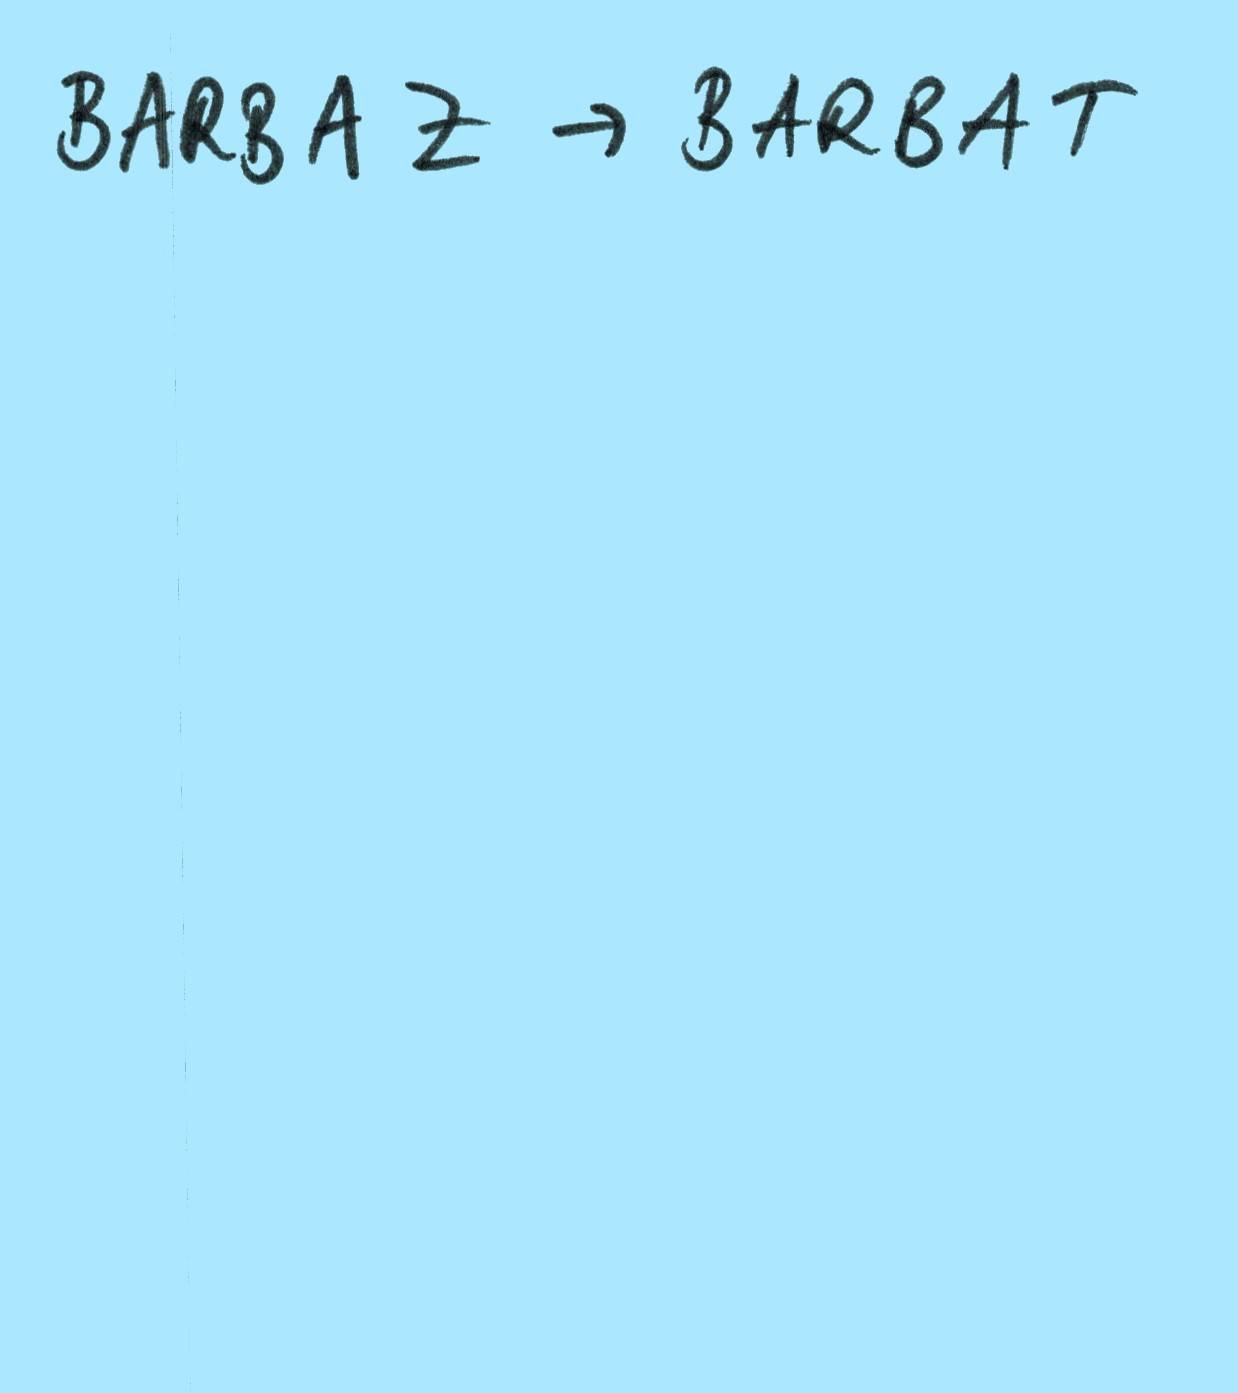 BARBAZ → BARBAT